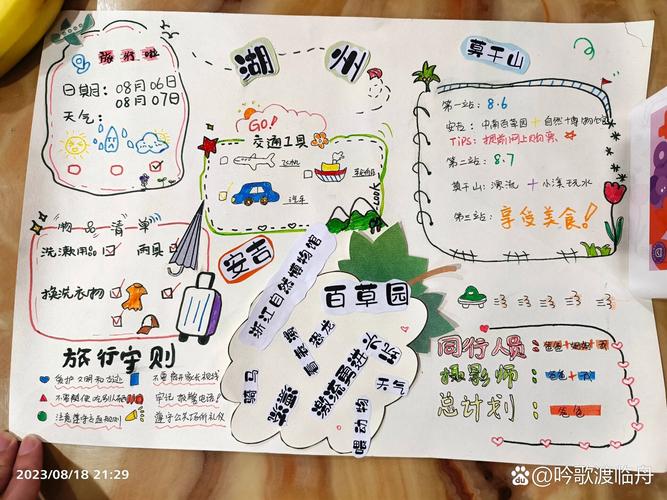 旅行啦
日期：08月06日
08月07日
天气：
湖州
GO!
交通工具
飞机
轮船
汽车
LOOK
莫干山
第一站：8.6
安吉：中南百草园+自然博物馆
TiPS：提前网上购票
第二站：8.7
莫干山：漂流+小溪玩水
第三站：享受美食！
物品清单
洗漱用品
雨具
换洗衣物
安吉
浙江自然博物馆
百草园
骑马
滑草
激流勇进
天气
喂动物
旅行守则
不要离开家长视线
牢记报警电话！
注意遵守交通规则
遵守公共场所礼仪
同行人员：爸爸+妈妈+我
摄影师：爸爸+
总计划：爸爸
2023/08/18 21:29
Bai du @吟歌渡临舟